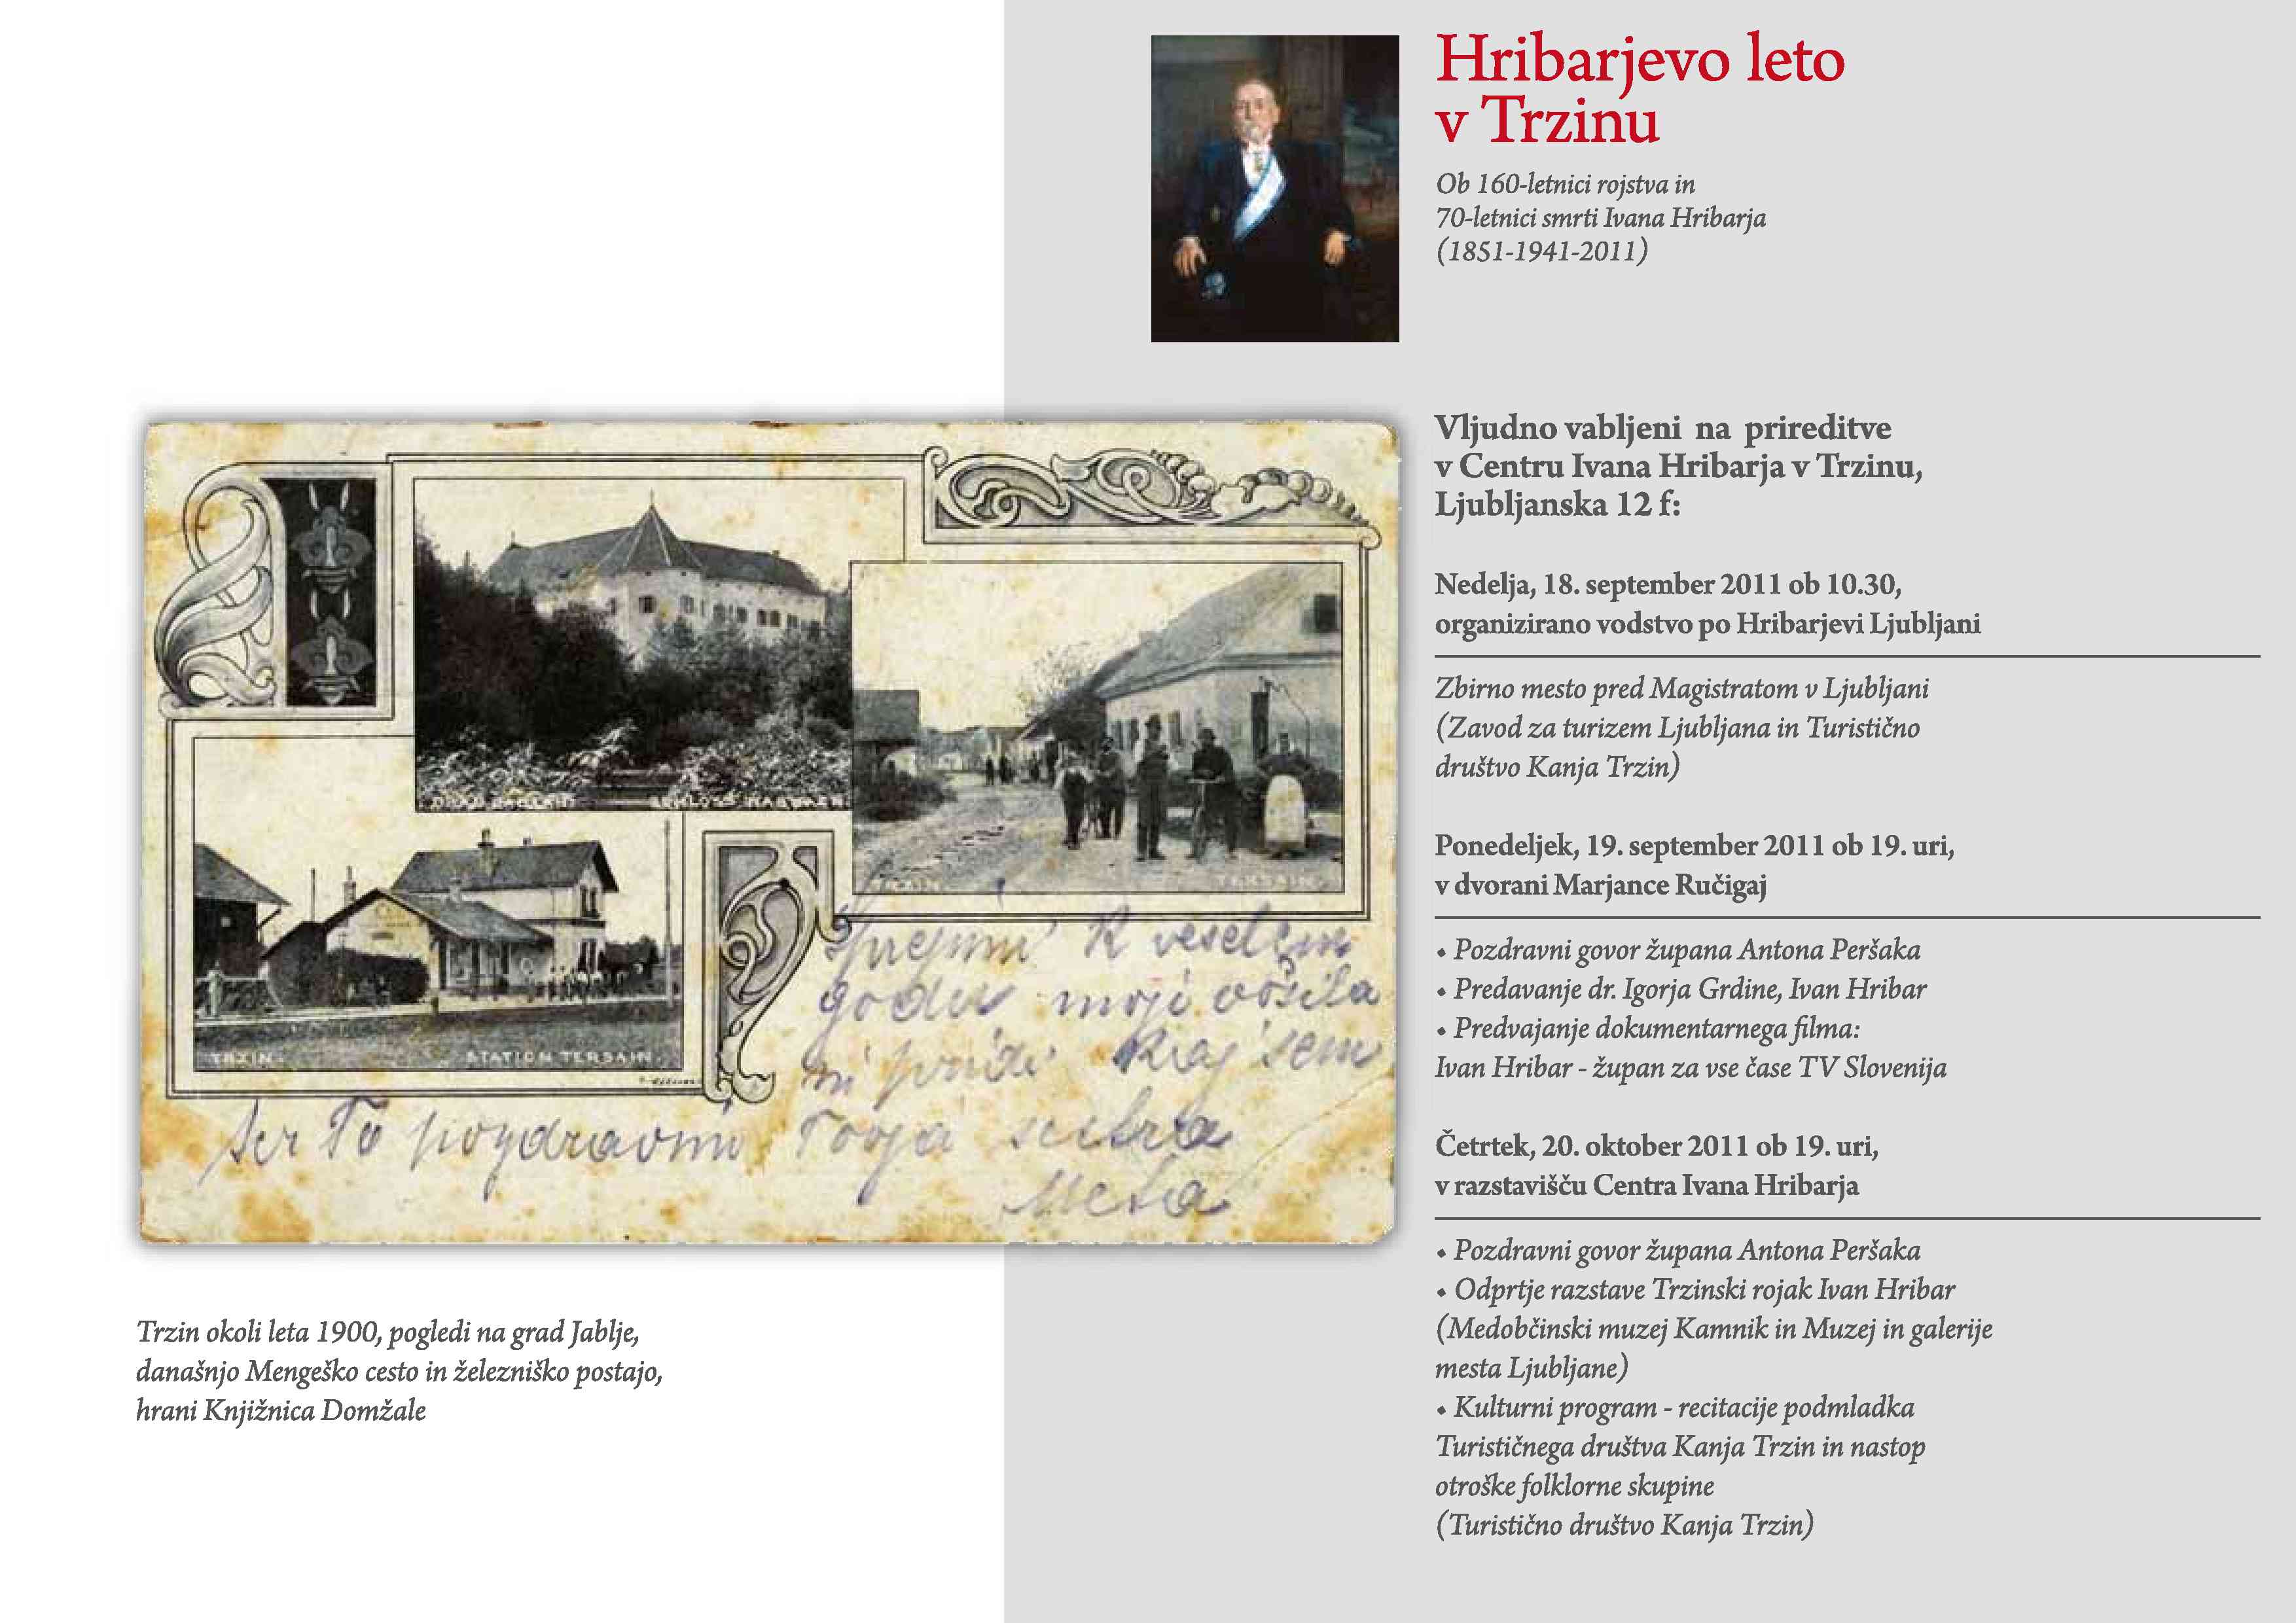 Hribarjevo leto
v Trzinu
Ob 160-letnici rojstva in
70-letnici smrti Ivana Hribarja
(1851-1941-2011)
Vljudno vabljeni na prireditve
v Centru Ivana Hribarja v Trzinu,
Ljubljanska 12 f:
Nedelja, 18. september 2011 ob 10.30,
organizirano vodstvo po Hribarjevi Ljubljani
Zbirno mesto pred Magistratom v Ljubljani
(Zavod za turizem Ljubljana in Turistično
društvo Kanja Trzin)
Ponedeljek, 19. september 2011 ob 19. uri,
v dvorani Marjance Ručigaj
• Pozdravni govor župana Antona Peršaka
• Predavanje dr. Igorja Grdine, Ivan Hribar
• Predvajanje dokumentarnega filma:
Ivan Hribar - župan za vse čase TV Slovenija
Četrtek, 20. oktober 2011 ob 19. uri,
v razstavišču Centra Ivana Hribarja
• Pozdravni govor župana Antona Peršaka
• Odprtje razstave Trzinski rojak Ivan Hribar
(Medobčinski muzej Kamnik in Muzej in galerije
mesta Ljubljane)
• Kulturni program - recitacije podmladka
Turističnega društva Kanja Trzin in nastop
otroške folklorne skupine
(Turistično društvo Kanja Trzin)
GRAD SCHLOSS
TERSAIN
TRZIN. STATION TERSAIN.
Sprejmi k veselem
godu moji vošila
ni pride kaj sem
ter To pozdravmi Tvoja sestra
Meta
Trzin okoli leta 1900, pogledi na grad Jablje,
današnjo Mengeško cesto in železniško postajo,
hrani Knjižnica Domžale